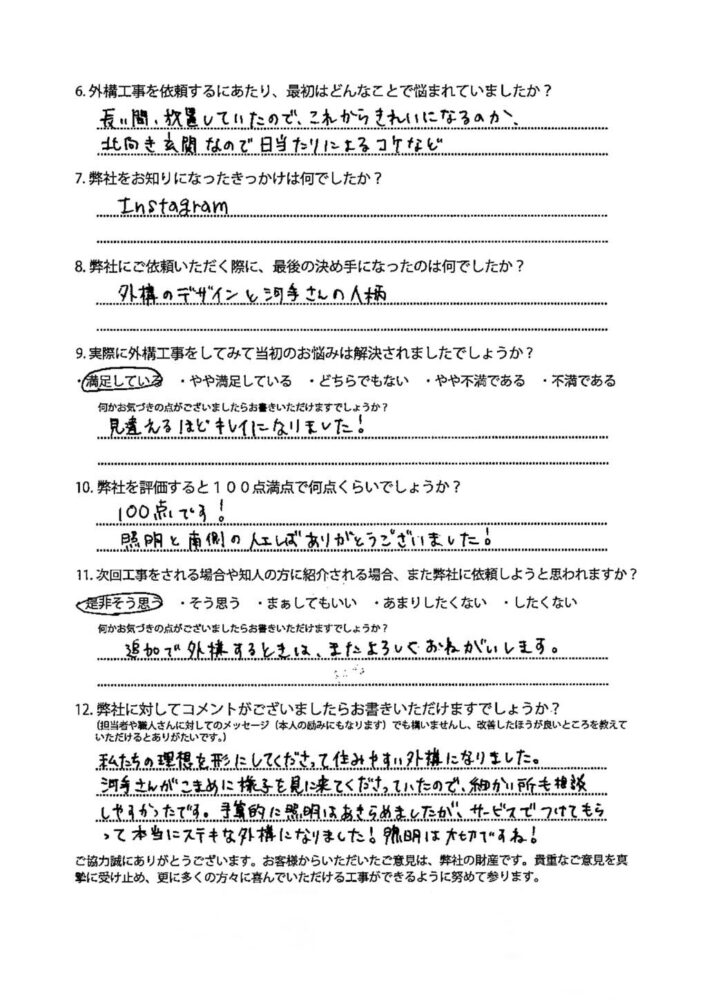 6. 外構工事を依頼するにあたり、最初はどんなことで悩まれていましたか？
長い間、放置していたので、これからきれいになるのか、
北向き玄関なので日当たりによるコケなど
7. 弊社をお知りになったきっかけは何でしたか？
Instagram
8. 弊社にご依頼いただく際に、最後の決め手になったのは何でしたか？
外構のデザインと河手さんの人柄
9. 実際に外構工事をしてみて当初のお悩みは解決されましたでしょうか？
・満足している ・やや満足している ・どちらでもない ・やや不満である ・不満である
何かお気づきの点がございましたらお書きいただけますでしょうか？
見違えるほどキレイになりました！
10. 弊社を評価すると１００点満点で何点くらいでしょうか？
100点です！
照明と南側の人工しばありがとうございました！
11. 次回工事をされる場合や知人の方に紹介される場合、また弊社に依頼しようと思われますか？
・是非そう思う ・そう思う ・まぁしてもいい ・あまりしたくない ・したくない
何かお気づきの点がございましたらお書きいただけますでしょうか？
追加で外構するときは、またよろしくおねがいします。
12. 弊社に対してコメントがございましたらお書きいただけますでしょうか？
（担当者や職人さんに対してのメッセージ（本人の励みにもなります）でも構いませんし、改善したほうが良いところを教えて
いただけるとありがたいです。）
私たちの理想を形にしてくださって住みやすい外構になりました。
河手さんがこまめに様子を見に来てくださっていたので、細かい所も相談
しやすかったです。予算的に照明はあきらめましたが、サービスでつけてもら
って本当にステキな外構になりました！照明は大切ですね！
ご協力誠にありがとうございます。お客様からいただいたご意見は、弊社の財産です。貴重なご意見を真
摯に受け止め、更に多くの方々に喜んでいただける工事ができるように努めて参ります。